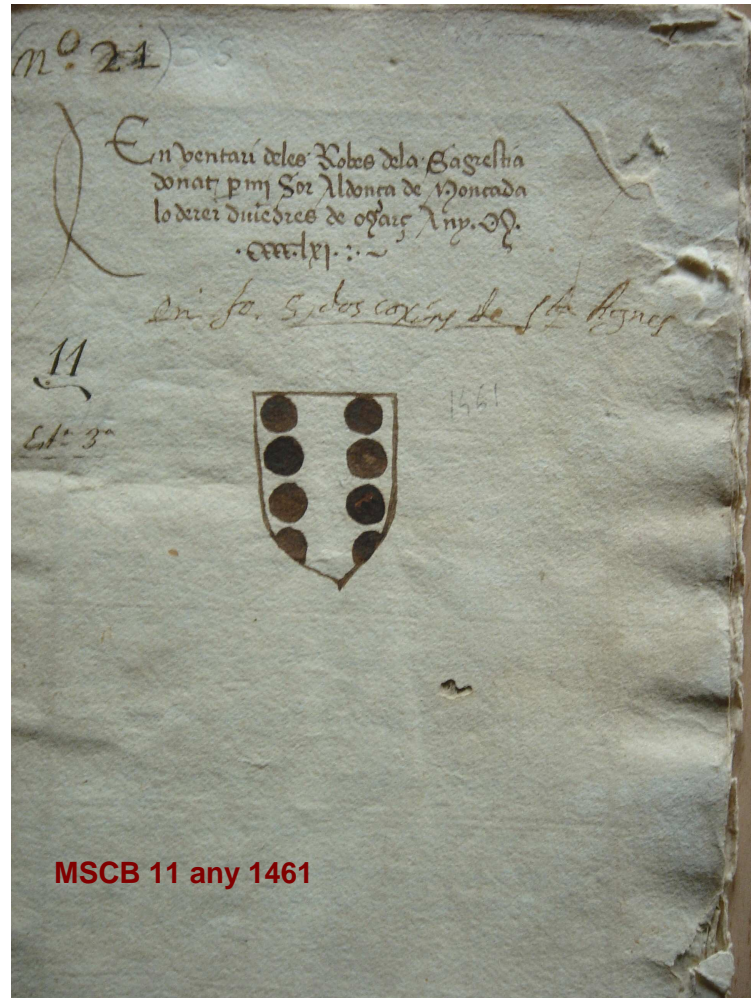 (nº. 21)
En ventari deles Robes dela Sagrestia
donat p mi Sor Aldonça de Moncada
lo derer diuēdres de Març Any. M.
.CCCC.lxi.
en fo. 5 dos coxins de Sta Agnes
11
Estª 3ª
MSCB 11 any 1461